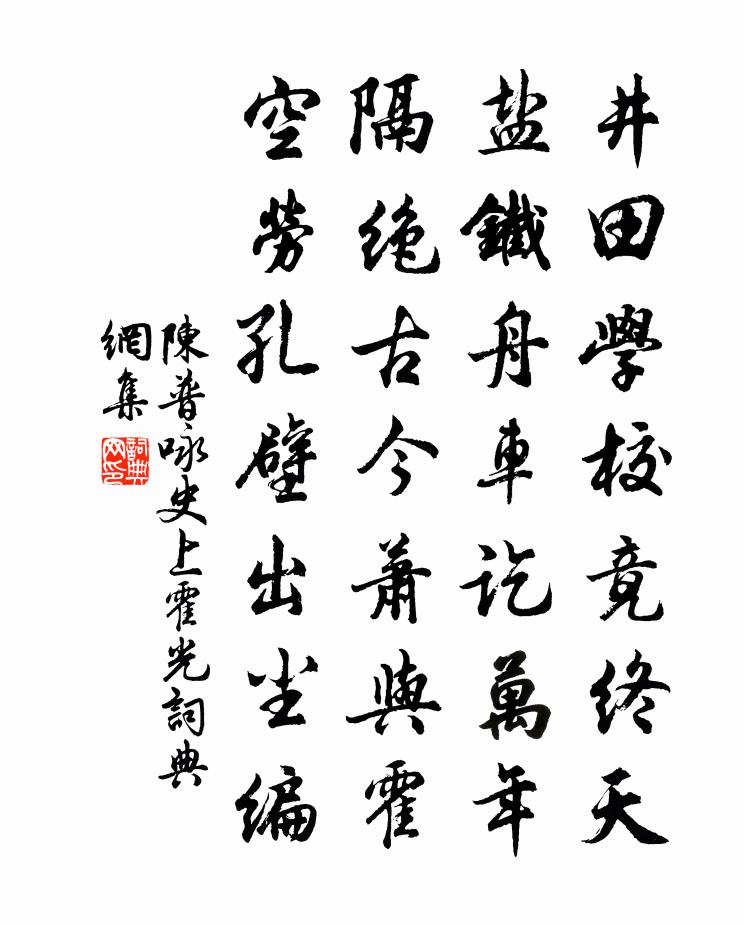 井田學校竟終天
盐鐵舟車訖萬年
隔绝古今蕭與霍
空勞孔壁出尘编
陳普咏史上霍光詞典
網集
詞典
网印